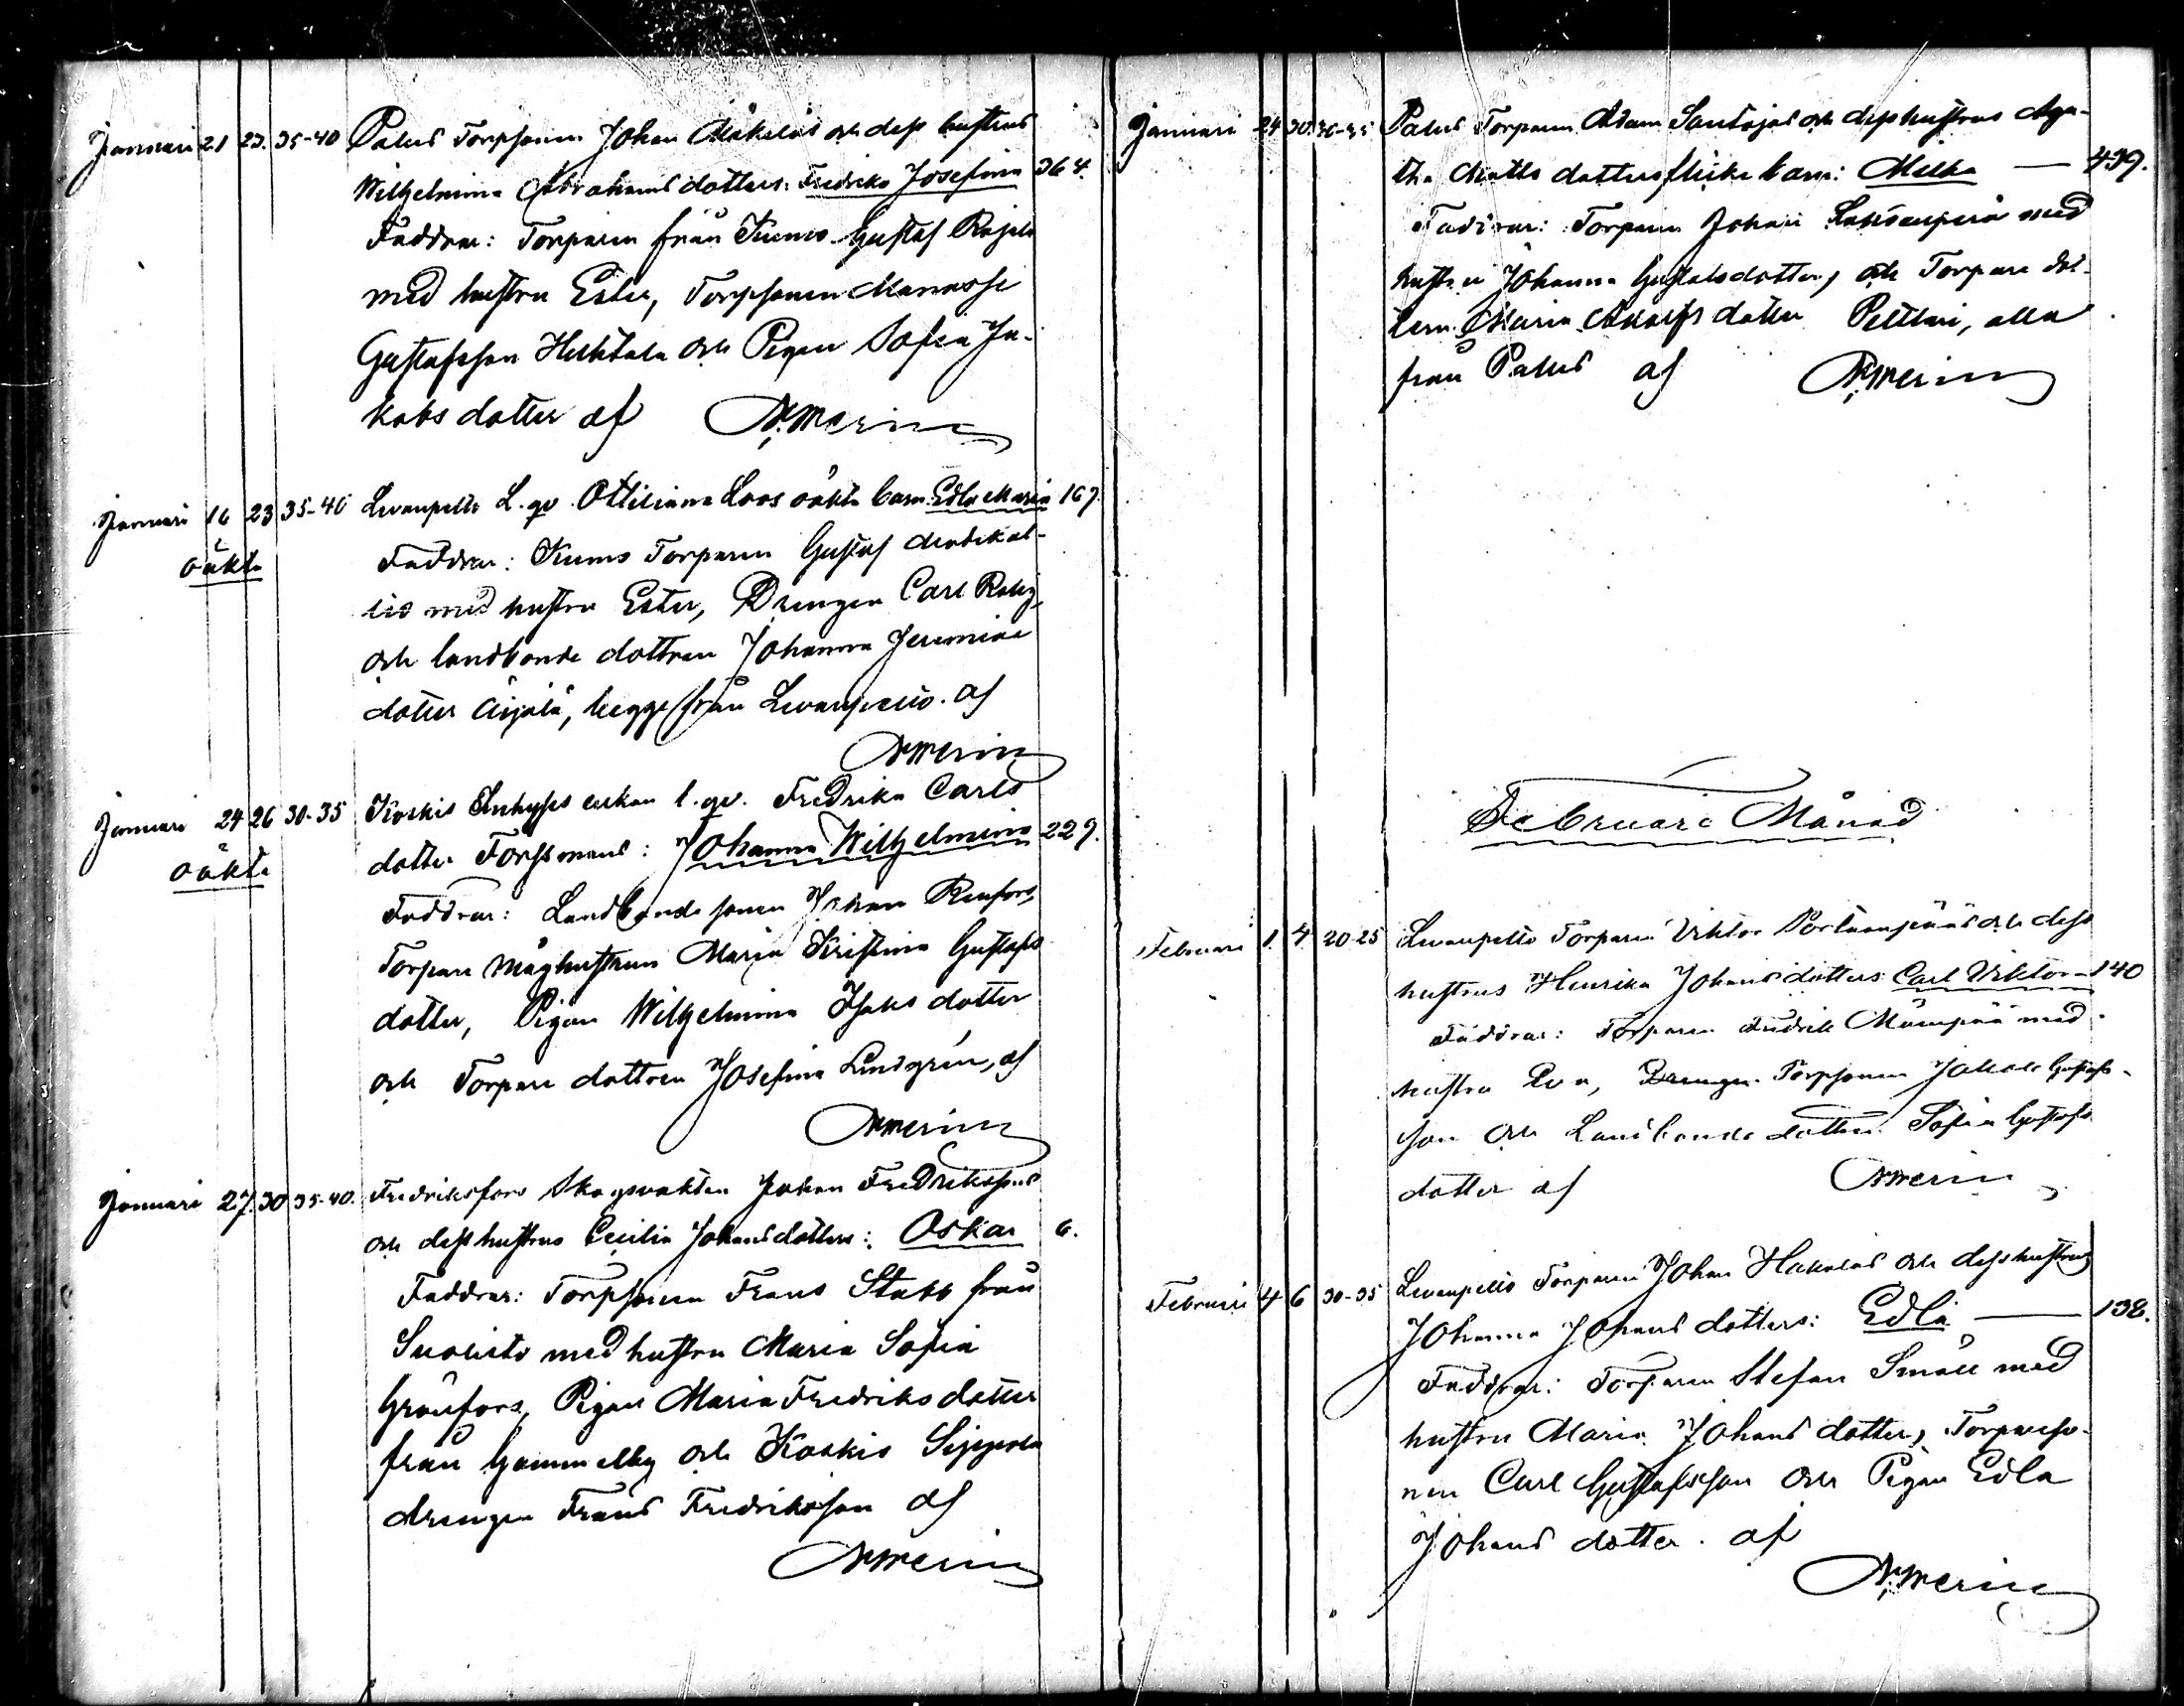 Januari 21 23. 35-40 Palus Torpsonen Johan Mäkeläs och dess hustrus
Wilhelmina Abrahams dotters: Fredrika Josefina 364.
Faddrar: Torparen från Kumo Gustaf Rajala
med hustru Ester, Torpsonen Manasse
Gustafsson Heikkala och Pigan Sofia Ja-
kobs dotter af
Januari 16 23 35-40 Levanpelto L. qv. Ottiliana Loos oäkta barn Edla Maria 167.
oäkta
Faddrar: Kumo Torparen Gustaf
med hustru Ester, Drengen Carl
och landbonde dottren Johanna Jeremiae
dotter Äijälä, begge från Levanpelto. af
Januari 24 26 30-35 Koskis Inhyses enkan l. qv. Fredrika Carls
oäkta
dotter Forssmans: Johanna Wilhelmina 229.
Faddrar: Landbonde sonen Johan Renfors,
Torpare måghustrun Maria Kristina Gustafs
dotter, Pigan Wilhelmina Isaks dotter
och Torpare dottren Josefina Lindgrén, af
Januari 27. 30 35-40. Fredriksfors Skogsvakten Johan Fredrikssons
och dess hustrus Cecilia Johansdotters: Oskar 6.
Faddrar: Torpsonen Frans Stabb från
Suolisto med hustru Maria Sofia
Grönfors, Pigan Maria Fredriks dotter
från Gammelby och Koskis Seppola
drengen Frans Fredriksson af
Januari 24 30 30-35 Palus Torparen Adam Santajas och dess hustrus Aga-
tha Matts dotters flicke barn: Milka — 439.
Faddrar: Torparen Johan med
hustru Johanna Gustafsdotter, och Torpare dot-
tern Maria Adolfs dotter Pelttari, alla
från Palus af
Februari Månad
Februari 1. 4 20-25 Levanpelto Torparen Viktor och dess
hustrus Henrika Johans dotters Carl Viktor — 140
Faddrar: Torparen Fredrik med
hustru Eva, Drengen Torpsonen Jakob Gustafs-
son och Landbonde dottren Sofia Gustafs
dotter af
Februari 4 6 30-35 Levanpelto Torparen Johan Hakalas och dess hustrus
Johanna Johans dotters: Edla — 138.
Faddrar: Torparen Stefan Småll med
hustru Maria Johans dotter, Torpareso-
nen Carl Gustafsson och Pigan Edla
Johans dotter. af